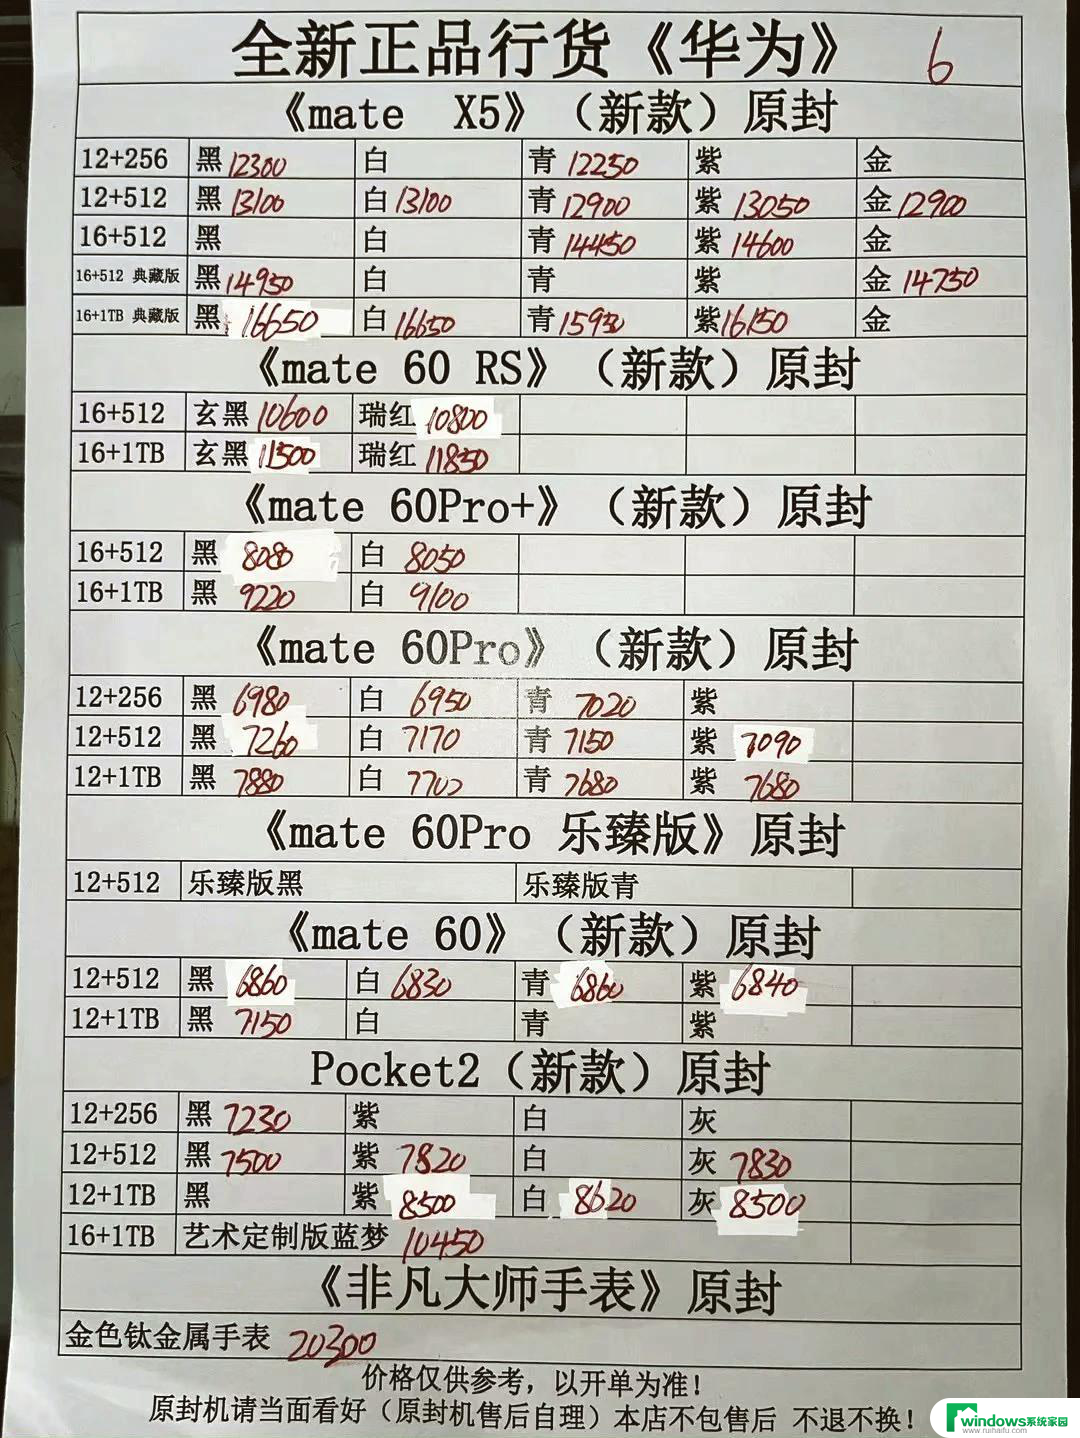 全新正品行货《华为》 6
《mate X5》（新款）原封
12+256 黑 12300 白 青 12250 紫 金
12+512 黑 13100 白 13100 青 12900 紫 13050 金 12900
16+512 黑 白 青 14450 紫 14600 金
16+512 典藏版 黑 14950 白 青 紫 金 14750
16+1TB 典藏版 黑 16650 白 16650 青 15950 紫 16150 金
《mate 60 RS》（新款）原封
16+512 玄黑 10600 瑞红 10800
16+1TB 玄黑 11500 瑞红 11850
《mate 60Pro+》（新款）原封
16+512 黑 8080 白 8050
16+1TB 黑 9220 白 9100
《mate 60Pro》（新款）原封
12+256 黑 6980 白 6950 青 7020 紫
12+512 黑 7260 白 7170 青 7150 紫 7090
12+1TB 黑 7880 白 7700 青 7680 紫 7680
《mate 60Pro 乐臻版》原封
12+512 乐臻版黑 乐臻版青
《mate 60》（新款）原封
12+512 黑 6860 白 6830 青 6860 紫 6840
12+1TB 黑 7150 白 青 紫
Pocket2（新款）原封
12+256 黑 7230 紫 白 灰
12+512 黑 7500 紫 7820 白 灰 7830
12+1TB 黑 紫 8500 白 8620 灰 8500
16+1TB 艺术定制版蓝梦 10450
《非凡大师手表》原封
金色钛金属手表 20300
价格仅供参考，以开单为准！
原封机请当面看好（原封机售后自理）本店不包售后 不退不换！
windows系统家园
www.ruihaitu.com